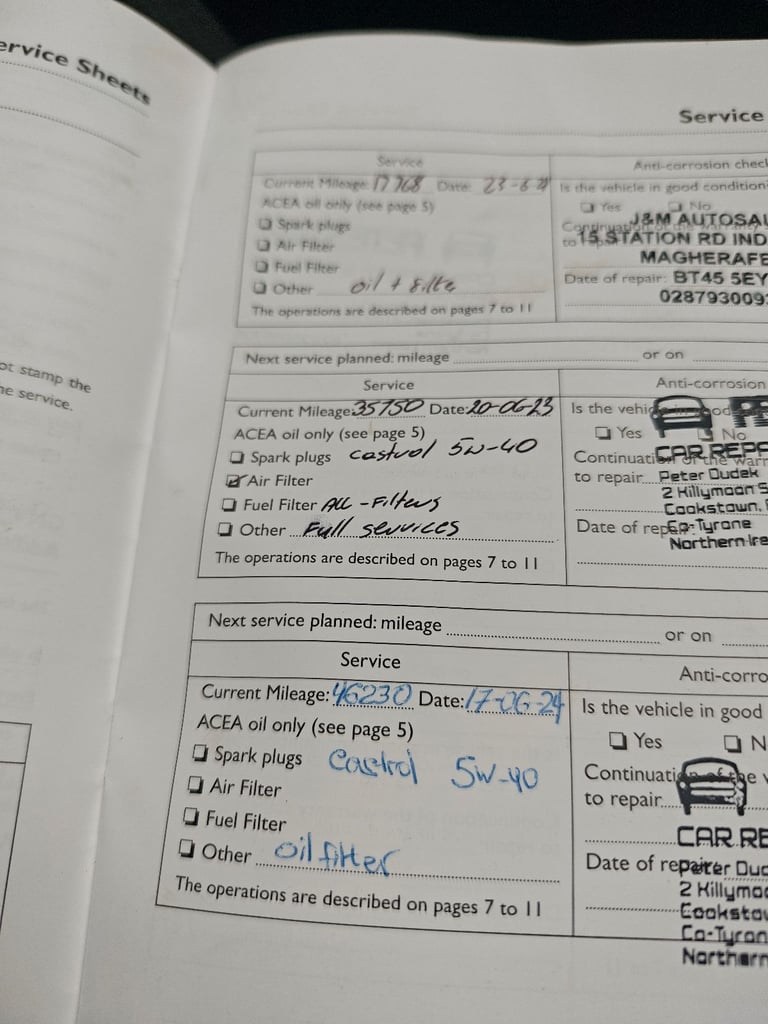 ervice Sheets
ot stamp the
he service.
Service
Service
Anti-corrosion chec
Current Mileage: 17768 Date: 23-6-21
Is the vehicle in good condition
ACEA oil only (see page 5)
Yes No
Spark plugs
J&M AUTOSAL
Air Filter
15 STATION RD IND
Fuel Filter
MAGHERAFE
Other oil + filte
Date of repair: BT45 5EY
0287930093
The operations are described on pages 7 to 11
Next service planned: mileage or on
Service
Anti-corrosion
Current Mileage: 35750 Date: 20-06-23
Is the vehicle in good
ACEA oil only (see page 5)
Yes No
Spark plugs castrol 5w-40
CAR REPA
Continuation of the warr
Air Filter
to repair Peter Dudek
2 Killymoon S
Fuel Filter ALL-Filters
Cookstown,
Other Full services
Date of repair: Co-Tyrone
Northern Ire
The operations are described on pages 7 to 11
Next service planned: mileage or on
Service
Anti-corro
Current Mileage: 46230 Date: 17-06-24
Is the vehicle in good
ACEA oil only (see page 5)
Yes N
Spark plugs Castrol 5w-40
Continuation of the w
Air Filter
to repair
Fuel Filter
CAR RE
Other oil filter
Date of repair: Peter Dud
2 Killymoo
The operations are described on pages 7 to 11
Cookstow
Co-Tyron
Northern